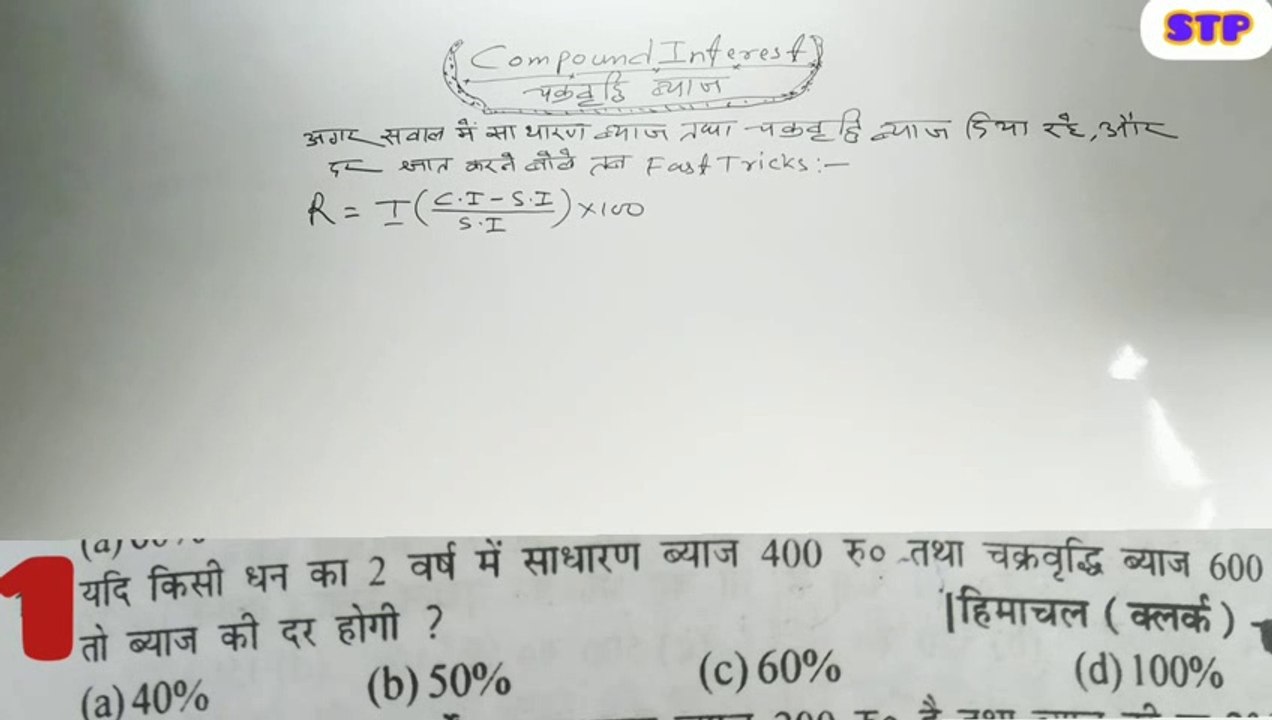 STP
Compound Interest
चक्रवृद्धि ब्याज
अगर सवाल में साधारण ब्याज तथा चक्रवृद्धि ब्याज दिया रहे, और
दर ज्ञात करने बोले तब Fast Tricks:-
R = I(C.I - S.I / S.I) × 100
1
यदि किसी धन का 2 वर्ष में साधारण ब्याज 400 रु० तथा चक्रवृद्धि ब्याज 600
तो ब्याज की दर होगी ?
|हिमाचल ( क्लर्क )
(a) 40% (b) 50% (c) 60% (d) 100%